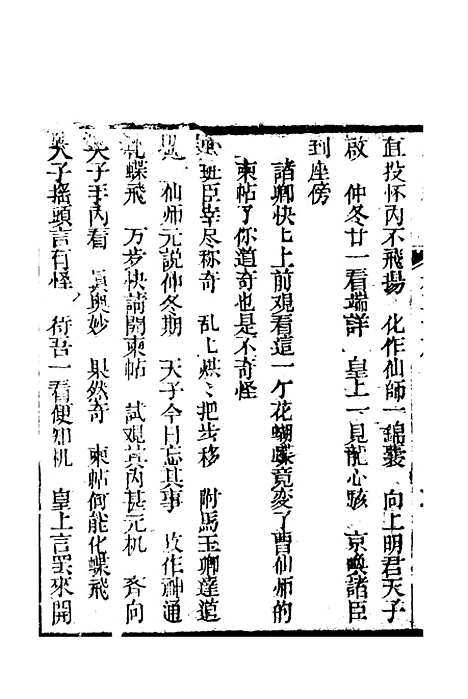 直投怀內不飛揚 化作仙師一錦囊 向上明君天子
啟 仲冬廿一看端詳 皇上一見龍心駭 京喚諸臣
到座傍
諸卿快上上前观看這一个花蝴蝶竟变了曹仙师的
柬帖了你道奇也是不奇怪
班臣宰尽称奇 乱上烘〻把步移 附馬玉卿達道
仙师元說仲冬期 天子今日忘其事 故作神通
乱蝶飛 万步快請開柬帖 試观其內甚元机 齐向
天子手內看 眞奥妙 果然奇 柬帖何能化蝶飛
天子摇頭言有怪 待吾一看便知机 皇上言罢來開